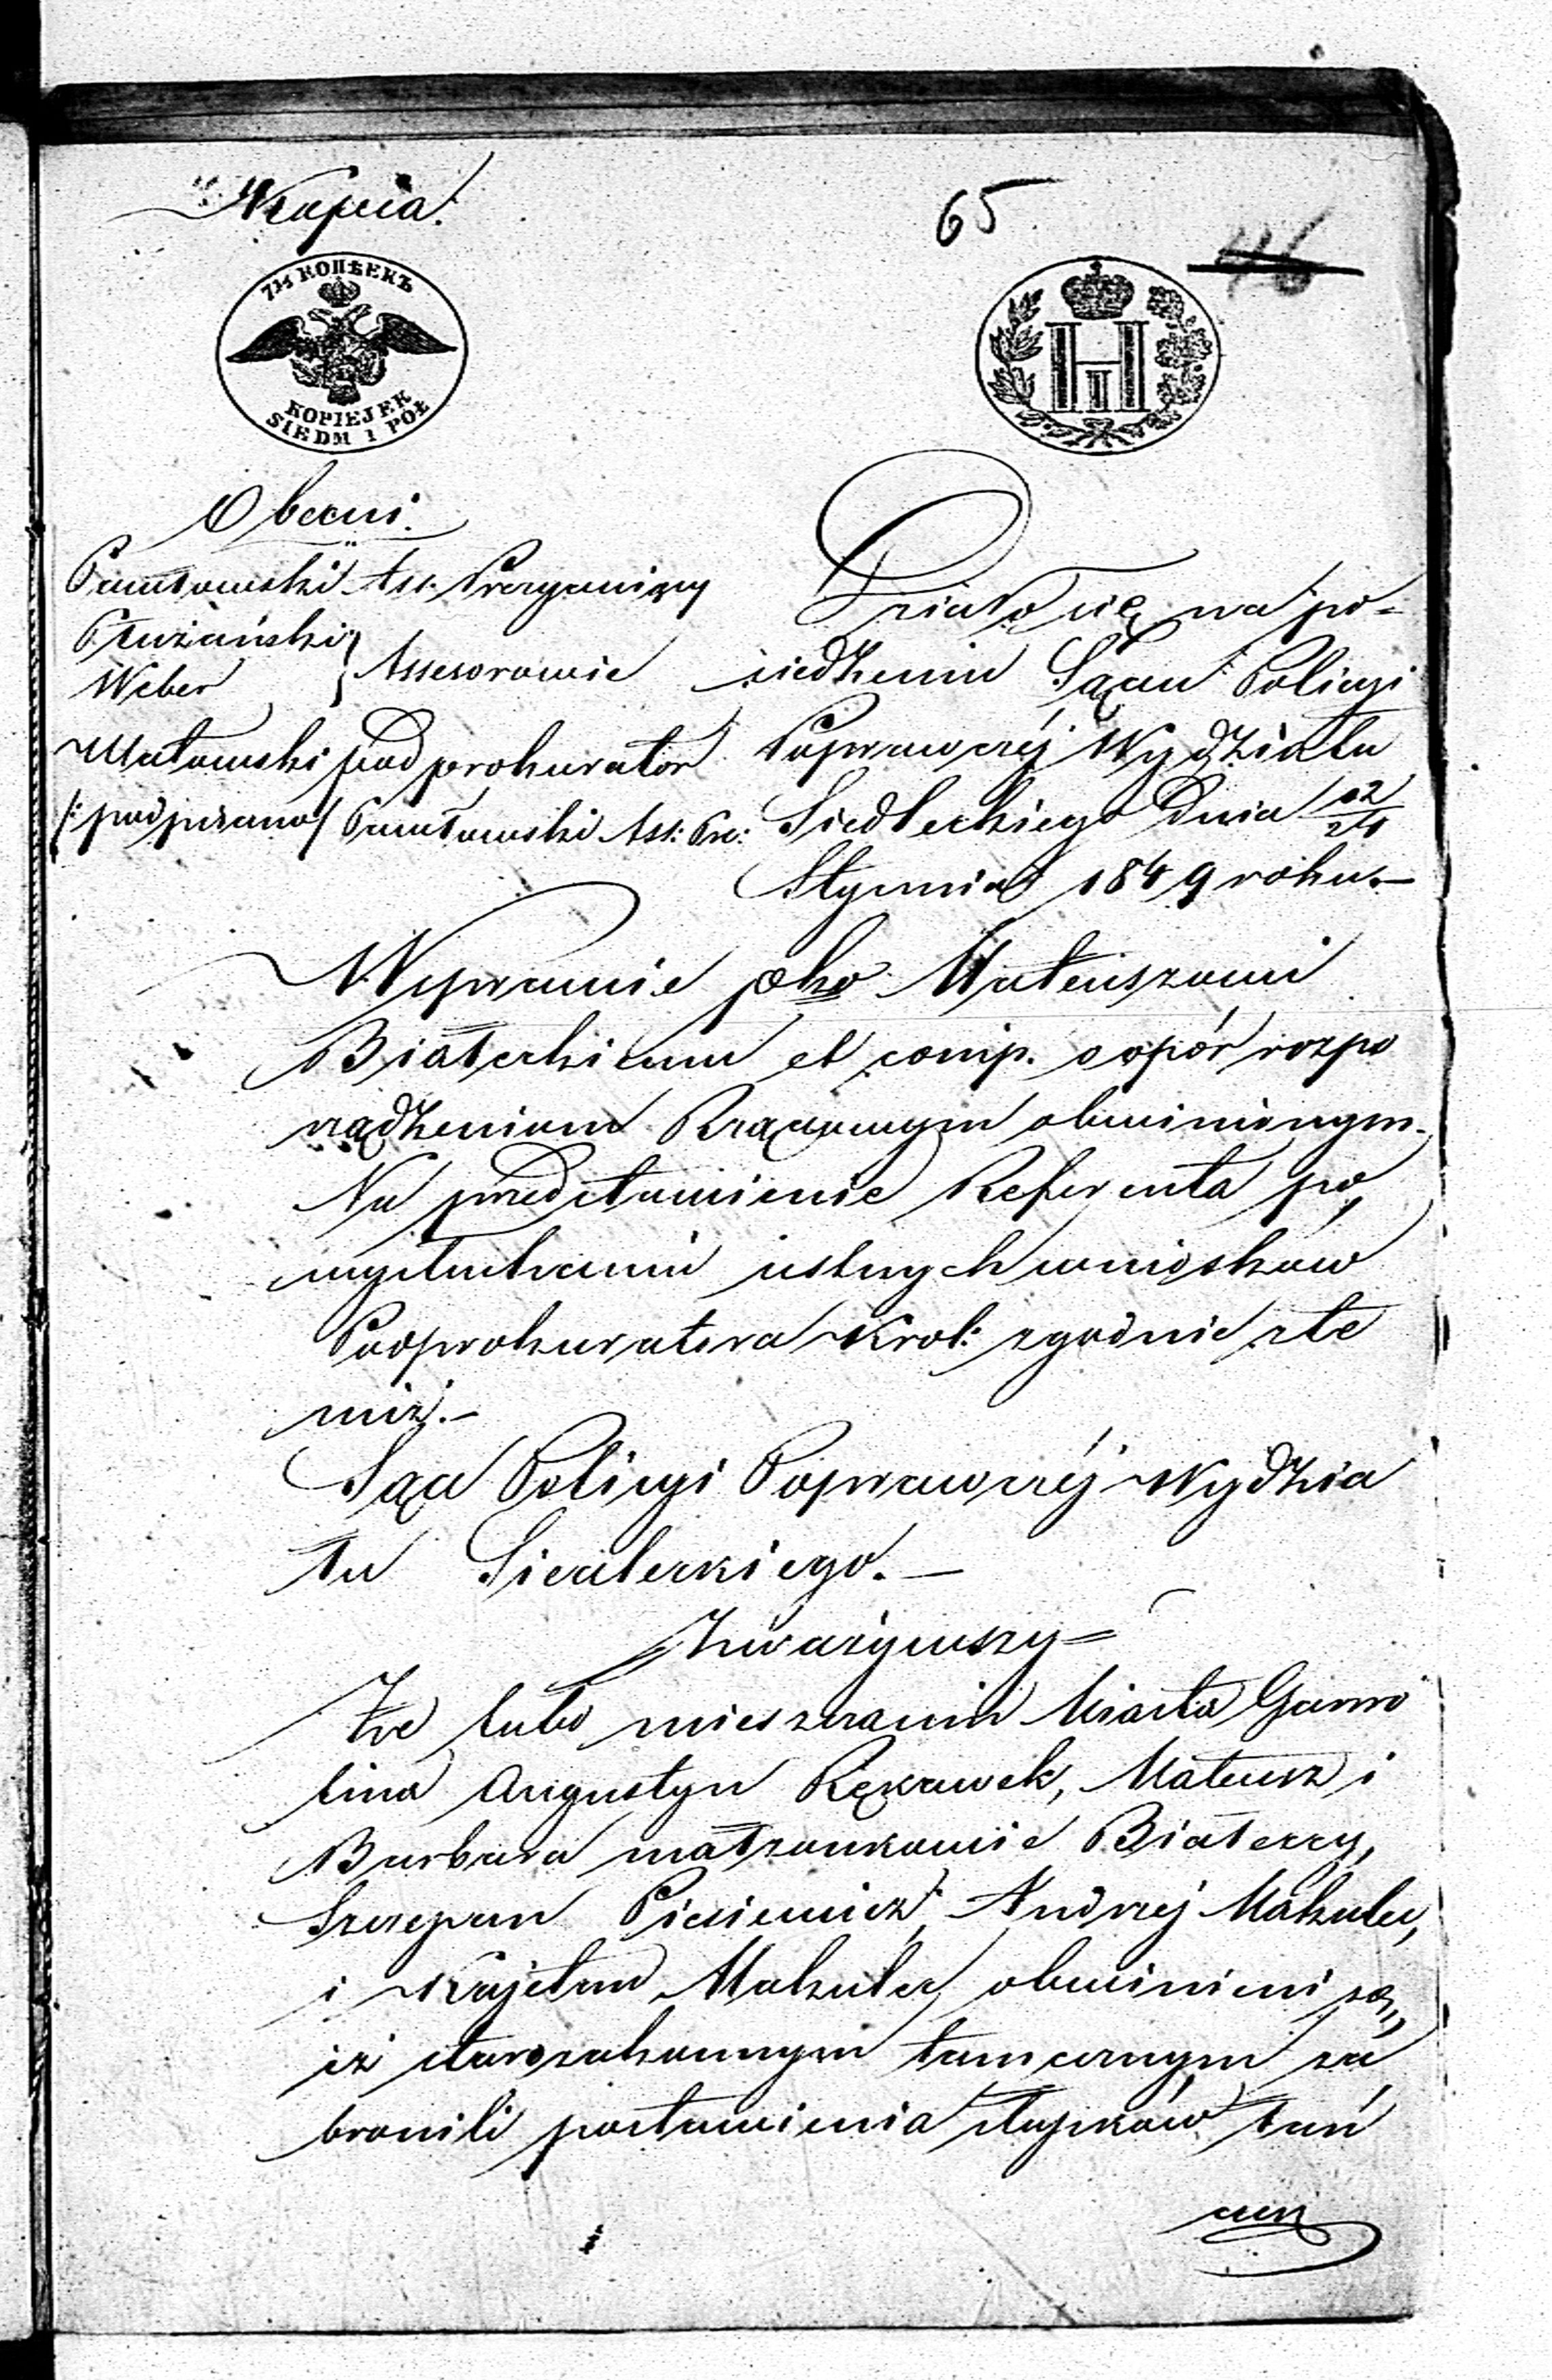 Kopia.
65
46
7½ КОПѢЕКЪ
KOPIEJEK
SIEDM I PÓŁ
H
III
Obecni.
Pawłowski Ass. Prezydujący
Prużański
Weber } Assesorowie
podprokurator
/: podpisano / Pawłowski Ass: Pre:
Działo się na po=
siedzeniu Sądu Policyi
Poprawczéj Wydziału
Siedleckiego dnia 12/24
Stycznia 1849 roku.—
W sprawie pko Mateuszowi
Białeckiemu et comp. o opór rozpo
rządzeniom Rządowym obwinionym.
Na przedstawienie Referenta po,
wysłuchaniu ustnych wniosków
Podprokuratora Król: zgodnie z te
miż.—
Sąd Policyi Poprawczéj Wydzia
łu Siedleckiego.—
Zważywszy=
Że lubo mieszczanie Miasta Garwo
lina Augustyn Rękawek, Mateusz i
Barbara małżonkowie Białeccy,
Szczepan Piesiewicz, Andrzej Makulec,
i Kajetan Makulec obwinieni są,,
iż starozakonnym tamecznym za
bronili postawienia słupków łań